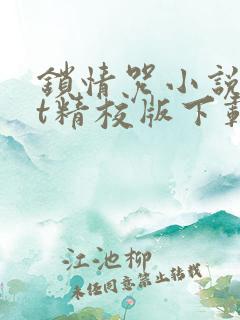 鎖情咒小說
t精校版下載
江池柳
未任同意禁止轉載